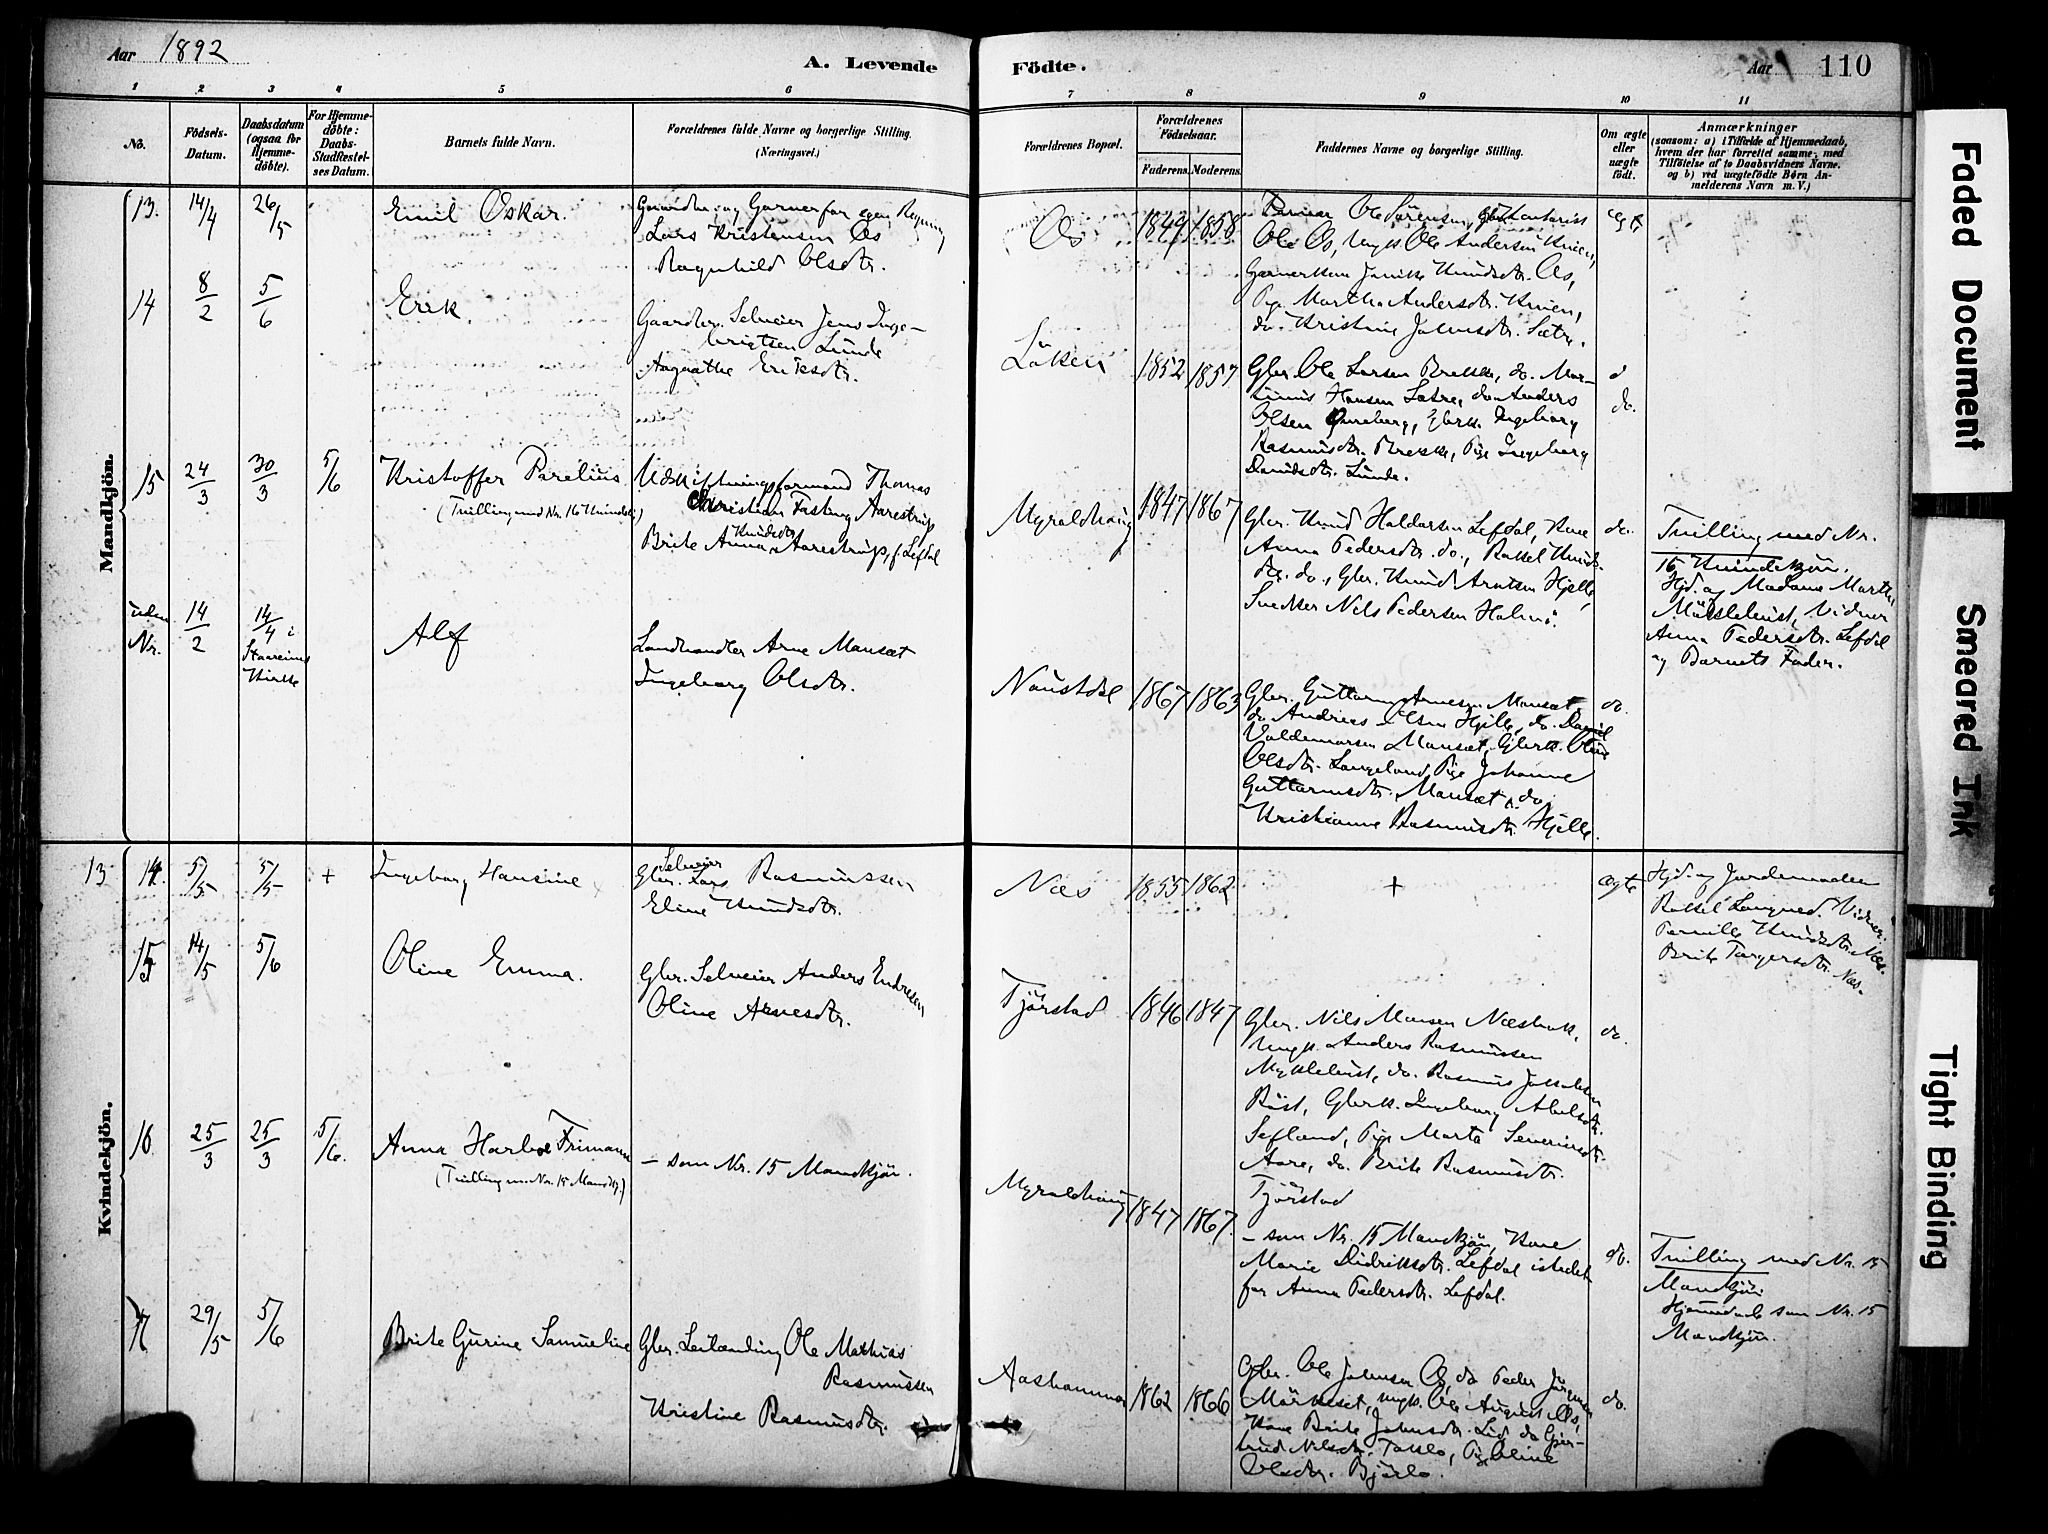 Aar 1892
A. Levende
Födte.
Aar
110
1 2 3 4 5 6 7 8 9 10 11
No.
Födsels-
Datum.
Daabsdatum
(ogsaa for
Hjemme-
døbte).
For Hjemme-
døbte:
Daabs-
Stadfæstel-
ses Datum.
Barnets fulde Navn.
Forældrenes fulde Navne og borgerlige Stilling.
(Næringsvei.)
Forældrenes Bopæl.
Forældrenes
Födselsaar.
Faderens. Moderens.
Faddernes Navne og borgerlige Stilling.
Om ægte
eller
uægte
født.
Anmærkninger
(saasom: a) i Tilfælde af Hjemmedaab,
hvem der har forrettet samme, med
Tilföielse af to Daabsvidners Navne.
og b) ved uægtefödte Börn An-
melderens Navn m. V.)
Mandkjön.
13. 14/4 26/5
Emil Oskar.
og Garver for egen Regning
Lars Kristensen Os
Ragnhild Olsdtr.
Os
1849 1858
Ole Sörensen,
Ole Os, Ungk. Ole Andersen
Knudsdtr. Os,
Pige Martha Andersdtr.
do. Kristine Johnsdtr. Sætre.
14 8/2 5/6
Erik
Gaardbr. Selveier Jens Inge-
brigtsen Lunde
Eriksdtr.
Löken
1852 1857
Gbr. Ole Larsen Brekke, do. Mar-
tinus Hansen Sætre, do. Anders
Olsen Gbrk. Ingeborg
Rasmusdtr. Brekke, Pige Ingeborg
Davidsdtr. Lunde.
do.
15 24/3 30/3 5/6
Kristoffer Parelius
(Tvilling med Nr. 16 Kvindekj.)
Udskiftningsformand Thomas
Christian Fasting Aarestrup
Knudsdtr.
Brite Anna Aarestrup, f. Lefdal
Myroldhaug
1847 1867
Gbr. Knud Haldorsen Lefdal, Kone
Anna Pedersdtr. do., Rakel Knuds-
dtr. do., Gbr. Knud Arntsen Hjelle,
Snedker Nils Pedersen
do.
Tvilling med Nr.
16 Kvindekjön.
Hjd. af Madame Marthe
Mykklebust, Vidner
Anna Pedersdtr. Lefdal
og Barnets Fader.
uden
Nr. 14/2 14/4 i
Staareims
Kirke
Alf
Landhandler Arne Mansæt
Ingeborg Olsdtr.
Naustdal
1867 1863
Gbr. Guttorm Arnesen Mansæt,
do. Andreas Olsen Hjelle, do. Daniel
Valdemarsen Mansæt, Gbrk. Oline
Olsdtr. Langeland, Pige Johanne
Guttormsdtr. Mansæt, do.
Kristianne Rasmusdtr. Hjelle.
do.
Kvindekjön.
13 14. 5/5 5/5 +
Ingeborg Hansine
Selveier
Gbr. Lars Rasmussen
Eline Knudsdtr.
Næs
1855 1862
+
ægte
Hjd. af Jordemoder
Rakel Vidner:
Pernille Knudsdtr. Næs.
Brite Næs.
15 14/5 5/6
Oline Emma.
Gbr. Selveier Anders Endresen
Oline Arnesdtr.
Tjörstad
1846 1847
Gbr. Nils Monsen Næsbak,
Ungk. Anders Rasmussen
Myklebust, do. Rasmus Jakobsen
Gbrk. Ingeborg Abelsdtr.
Sefland, Pige Marta Severinsdtr.
Aare, do. Brite Rasmusdtr.
Tjörstad
do.
16. 25/3 25/3 5/6.
Anna Harboe Frimann
(Tvilling m. Nr. 15 Mandkj.)
– som Nr. 15 Mandkjön.
Myroldhaug
1847 1867.
– som Nr. 15 Mandkjön, Kone
Marie Didriksdtr. Lefdal istedet
for Anna Pedersdtr. Lefdal.
do.
Tvilling med Nr. 15
Mandkjön
Hjemmedaab som Nr. 15
Mandkjön.
17. 29/5 5/6
Brite Gurine Samueline
Gbr. Leilænding Ole Mathias
Rasmussen
Kristine Rasmusdtr.
Aashammar
1862 1866
Gbr. Ole Johnsen Os, do. Peder Jörgensen
ungk. Ole August Os,
Kone Brite Johnsdtr. Lid, do. Gjer-
trud Nilsdtr. Taklo, Pige Oline
Olsdtr. Bjørlo.
do.
Faded Document
Smeared Ink
Tight Binding